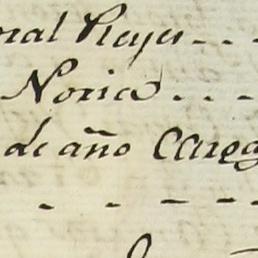 oral Reyes - - -
Noria - - -
de año Carg
- - - - -